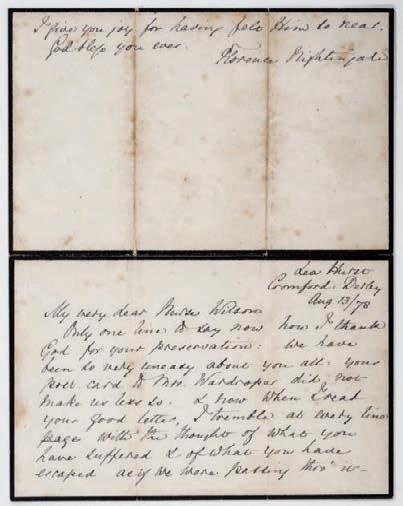 I give you joy for having felt Him so near.
God bless you ever.
Florence Nightingale
Lea Hurst
Cromford: Derby
Aug 13/78
My very dear Nurse Wilson
Only one line to say now how I thank
God for your preservation: we have
been so very uneasy about you all: your
post card to Mrs. Wardroper did not
make us less so. & now when I read
your good letter, I tremble at every line
page with the thought of what you
have suffered & of what you have
escaped as if we were passing thro' it—